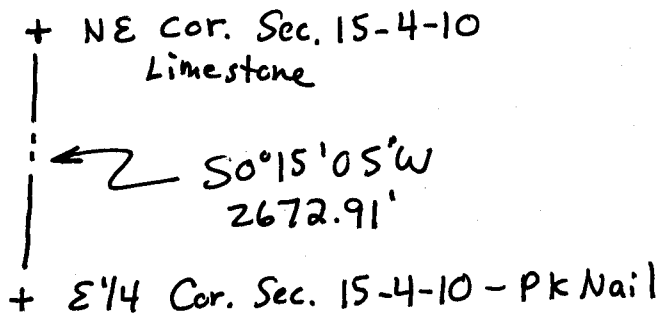 + NE Cor. Sec. 15-4-10
Limestone
S0°15'05"W
2672.91'
+ E1/4 Cor. Sec. 15-4-10 - PK Nail